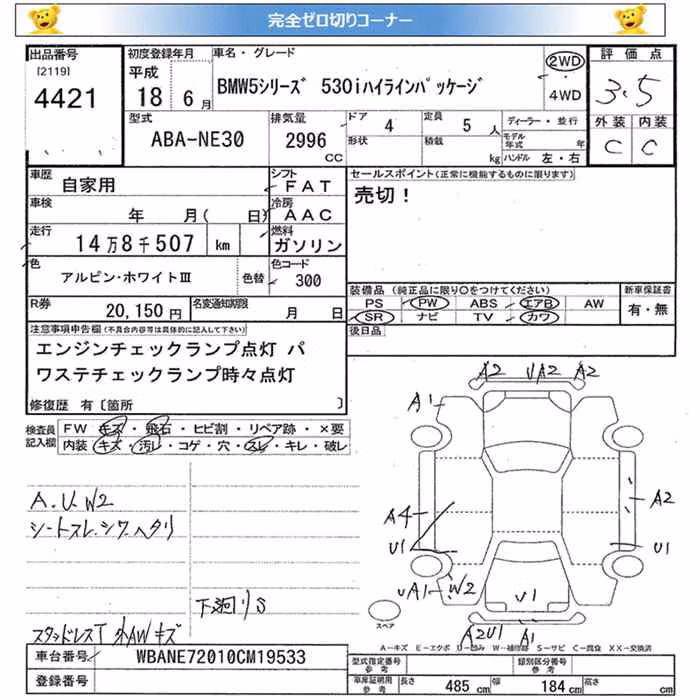 完全ゼロ切りコーナー
出品番号 初度登録年月 車名・グレード 2WD 評価点
[2119] 平成 BMW5シリーズ 530iハイラインパッケージ
4421 18年 6月 4WD 3.5
型式 排気量 ドア 4 定員 5人 ディーラー・並行 外装 内装
ABA-NE30 2996 cc 形状 積載 kg モデル年式 年 C C
ハンドル 左・右
車歴 自家用 シフト FAT セールスポイント(正常に機能するものに限ります)
車検 年 月( 日) 冷房 AAC 売切!
走行 14万8千507 km 燃料 ガソリン
色 アルピン・ホワイトIII 色替 色コード 300
装備品(純正品に限り○をつけてください) 新車保証書
R券 20,150円 名変通知期限 月 日 PS PW ABS エアB AW 有・無
SR ナビ TV カワ
注意事項申告欄(不具合内容等は具体的に記入して下さい) 後日品
エンジンチェックランプ点灯 パ
ワステチェックランプ時々点灯
修復歴 有〔箇所 〕
検査員 FW キズ・飛石・ヒビ割・リペア跡・×要
記入欄 内装・キズ・汚レ・コゲ・穴・スレ・キレ・破レ
A2 UA2 A2
A1
A.U.W2
シートスレ.シワ.ヘタリ
A4 A2
U1 U1
UA1 W2
U1
下廻りS
スペア
スタッドレスT 外AWキズ
A2U1 A1
A-キズ E-エクボ U-凹み W-補修跡 S-サビ C-腐食 XX-交換済
車台番号 WBANE72010CM19533 型式指定番号 参考 類別区分番号 参考
登録番号 車庫証明用 参考 長さ 485 cm 幅 184 cm 高さ cm